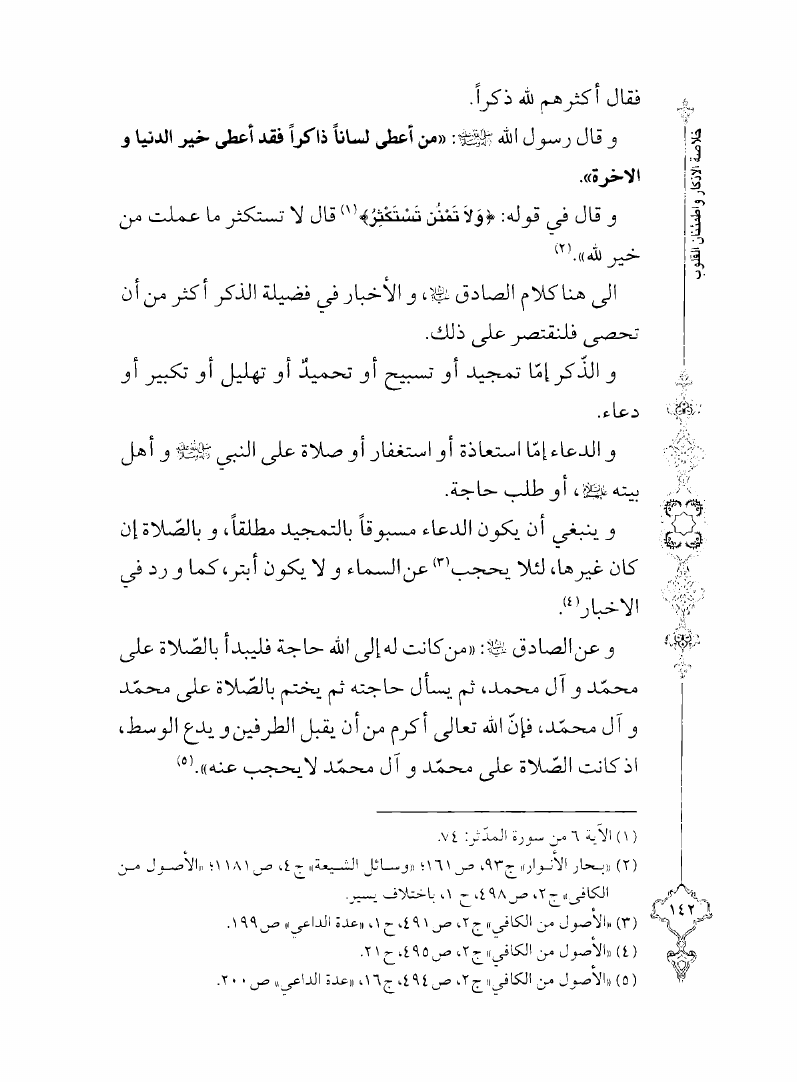 فقال أكثرهم لله ذكراً.
و قال رسول الله ﷺ: «من أعطى لساناً ذاكراً فقد أعطى خير الدنيا و
الاخرة».
و قال في قوله: ﴿وَلاَ تَمْنُن تَسْتَكْثِرُ﴾(١) قال لا تستكثر ما عملت من
خير لله».(٢)
الى هنا كلام الصادق ﷷ، و الأخبار في فضيلة الذكر أكثر من أن
تحصى فلنقتصر على ذلك.
و الذّكر إمّا تمجيد أو تسبيح أو تحميدٌ أو تهليل أو تكبير أو
دعاء.
و الدعاء إمّا استعاذة أو استغفار أو صلاة على النبي ﷺ و أهل
بيته، أو طلب حاجة.
و ينبغي أن يكون الدعاء مسبوقاً بالتمجيد مطلقاً، و بالصّلاة إن
كان غيرها، لئلا يحجب(٣) عن السماء و لا يكون أبتر، كما و رد في
الاخبار(٤).
و عن الصادق ﷷ: «من كانت له إلى الله حاجة فليبدأ بالصّلاة على
محمّد و آل محمد، ثم يسأل حاجته ثم يختم بالصّلاة على محمّد
و آل محمّد، فإنّ الله تعالى أكرم من أن يقبل الطرفين و يدع الوسط،
اذ كانت الصّلاة على محمّد و آل محمّد لا يحجب عنه».(٥)
(١) الآية ٦ من سورة المدّثر: ٧٤.
(٢) «بحار الأنوار» ج٩٣، ص ١٦١؛ «وسائل الشيعة» ج٤، ص ١١٨١؛ «الأصول من
الكافي» ج٢، ص٤٩٨، ح ١، باختلاف يسير.
(٣) «الأصول من الكافي» ج٢، ص ٤٩١، ح١، «عدة الداعي» ص١٩٩.
(٤) «الأصول من الكافي» ج٢، ص٤٩٥، ح٢١.
(٥) «الأصول من الكافي» ج٢، ص ٤٩٤، ج١٦، «عدة الداعي» ص٢٠٠.
خلاصة الاذكار واطمئنان القلوب
١٤٢